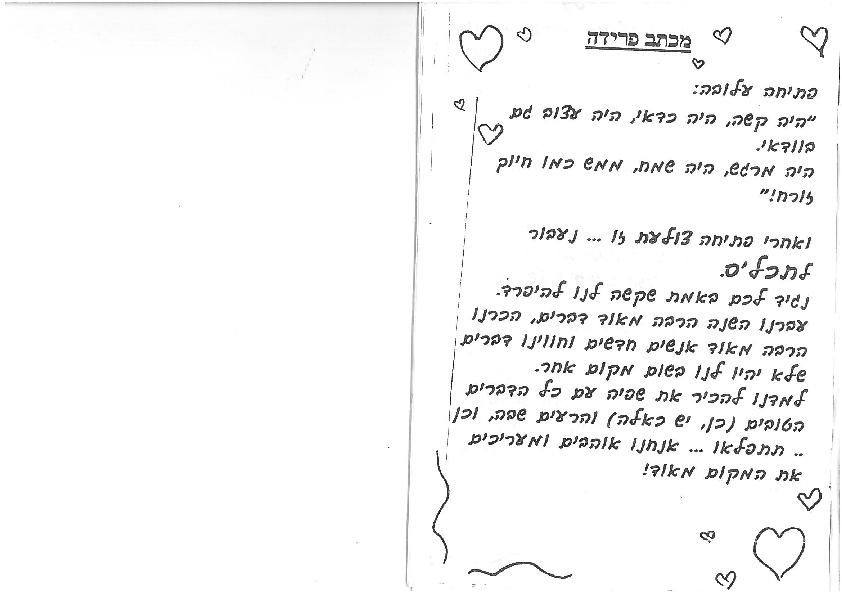 מכתב פרידה
פתיחה עלובה:
"היה קשה, היה כדאי, היה עצוב גם
בוודאי.
היה מרגש, היה שמח, ממש כמו חיוק
זורח!"
ואחרי פתיחה צולעת זו ... נעבור
לתכל'יס.
נגיד לכם באמת שקשה לנו להיפרד.
עברנו השנה הרבה מאוד דברים, הכרנו
הרבה מאוד אנשים חדשים וחווינו דברים
שלא יהיו לנו בשום מקום אחר.
למדנו להכיר את שפיה עם כל הדברים
הטובים (כן, יש כאלה) והרעים שבה, וכן
.. תתפלאו ... אנחנו אוהבים ומעריכים
את המקום מאוד!